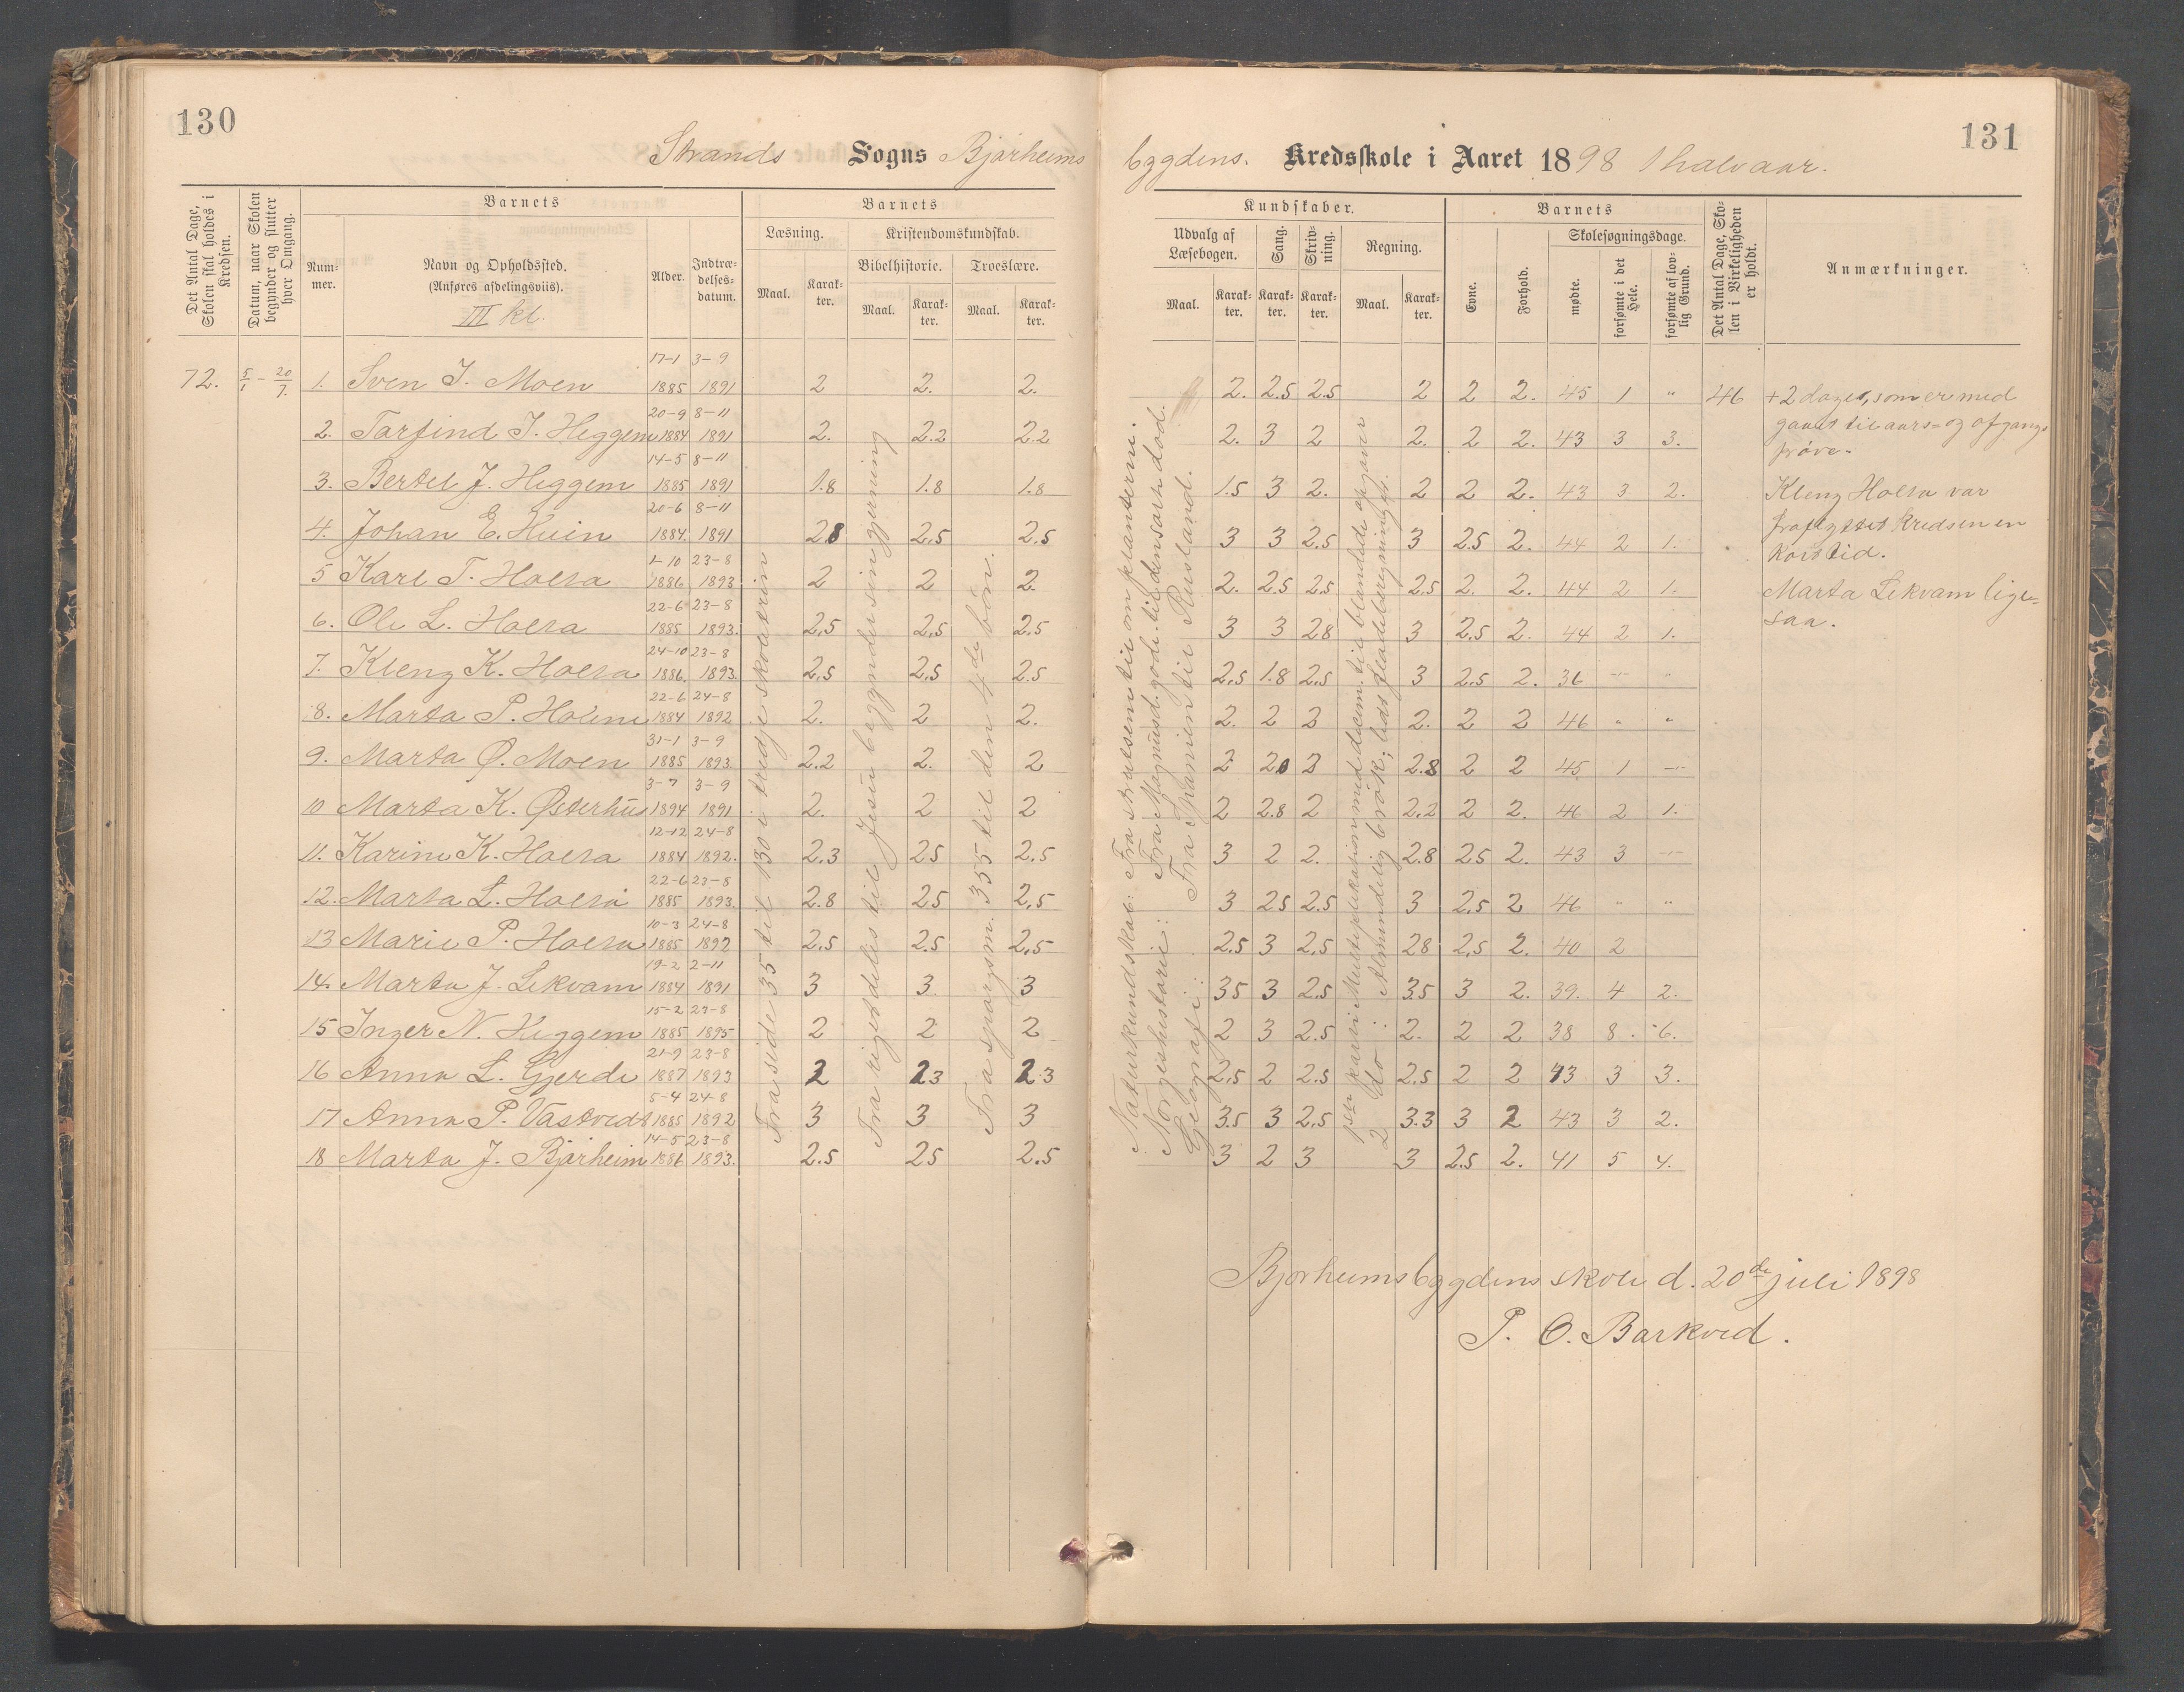 130
131
Strands Sogns Bjørheims
bygdens. Kredsskole i Aaret 1898 1 halvaar.
Det Antal Dage, Skolen skal holdes i Kredsen.
Datum, naar Skolen begynder og slutter hver Omgang.
Barnets
Num-mer.
Navn og Opholdssted.
(Anføres afdelingsviis).
III kl.
Alder.
Indtræ-delses-datum.
Barnets
Læsning.
Maal.
Karak-ter.
Kristendomskundskab.
Bibelhistorie.
Maal.
Karak-ter.
Troeslære.
Maal.
Karak-ter.
Kundskaber.
Udvalg af Læsebogen.
Maal.
Karak-ter.
Sang.
Karak-ter.
Skriv-ning.
Karak-ter.
Regning.
Maal.
Karak-ter.
Barnets
Evne.
Forhold.
Skolesøgningsdage.
mødte.
forsømte i det Hele.
forsømte af lov-lig Grund.
Det Antal Dage, Sko-len i Virkeligheden er holdt.
Anmærkninger.
72. 5/1 - 20/7.
1. Sven I. Moen 17-1 1885 3-9 1891 2 2. 2. 2. 2.5 2.5 2 2 2. 45 1 " 46
2. Torfind I. Heggem 20-9 1884 8-11 1891 2. 2.2 2.2 2. 3 2 2. 2 2. 43 3 3.
3. Bertel J. Heggem 14-5 1885 8-11 1891 1.8 1.8 1.8 1.5 3 2. 2 2 2. 43 3 2.
4. Johan E. Hein 20-6 1884. 8-11 1891 2.8 2.5 2.5 3 3 2.5 3 2.5 2. 44 2 1.
5 Karl T. Holta 1-10 1886 23-8 1893 2 2 2 2. 2.5 2.5 2.5 2. 2. 44 2 1.
6. Ole L. Holta 22-6 1885 23-8 1893. 2,5 2,5 2,5 3 3 28 3 2.5 2. 44 2 1.
7. Kleng K. Holta 24-10 1886. 23-8 1893. 2,5 2,5 2.5 2,5 1.8 2,5 3 2,5 2. 36 " "
8. Marta P. Holme 22-6 1884 24-8 1892 2. 2 2. 2. 2 2 2. 2 2 46 " "
9. Marta Ø. Moen 31-1 1885 3-9 1893. 2.2 2. 2 2 2 2.8 2 2 45 1 "
10 Marta K. Østerhus 3-7 1894 3-9 1891 2. 2 2 2 2.8 2 2,2 2 2. 46 2 1.
11. Karine K. Holta 12-12 1884 24-8 1892. 2.3 25 2.5 3 2 2. 2.8 25 2. 43 3 "
12. Marta L. Holta 22-6 1885 23-8 1893. 2.8 25 2,5 3 25 2.5 3 2,5 2 46 " "
13 Marie P. Holta 10-3 1885 24-8 1892 2.5 2.5 2,5 2.5 3 2,5 28 2,5 2. 40 2
14. Marta J. Lekvam 19-2 1884 2-11 1891 3 3. 3 35 3 2.5 3.5 3 2. 39. 4 2.
15 Inger N. Heggem 15-2 1885 23-8 1895 2 2 2 2 3 2.5 2. 2 2 38 8. 6.
16 Anna L. Gjerde 21-9 1887 23-8 1893 2 2.3 2.3 2,5 2 2.5 2.5 2 2 43 3 3.
17 Anna P. Vastveit 5-4 1885 24-8 1892 3 3 3 3.5 3 2,5 3.3 3 2 43 3 2.
18 Marta J. Bjørheim 14-5 1886 23-8 1893. 2.5 25 2.5 3 2 3 3 2.5 2. 41 5 4.
Fra side 35 til 130 i tredje skoletrin
Fra riget deles til Jesu begyndersingjerning
Fra spørgsm. 355 til den 4de bøn.
Naturkundskab: Fra til om planterne.
Norgeshistorie: Fra Magnus d. gode til dansk død.
Geografi: Fra Spanien til Rusland.
1ste karti Multiplikation med decim. til blandede opgaver
2 do Almindelig brøk; lidt fladeberegninger.
+ 2 dage, som er med
gaaet til aars- og afgangs
prøve.
Kleng Holta var
fraflyttet kredsen en
kort tid.
Marta Lekvam lige-
saa.
Bjørheimsbygdens skole d. 20de juli 1898
P. O. Barkved.